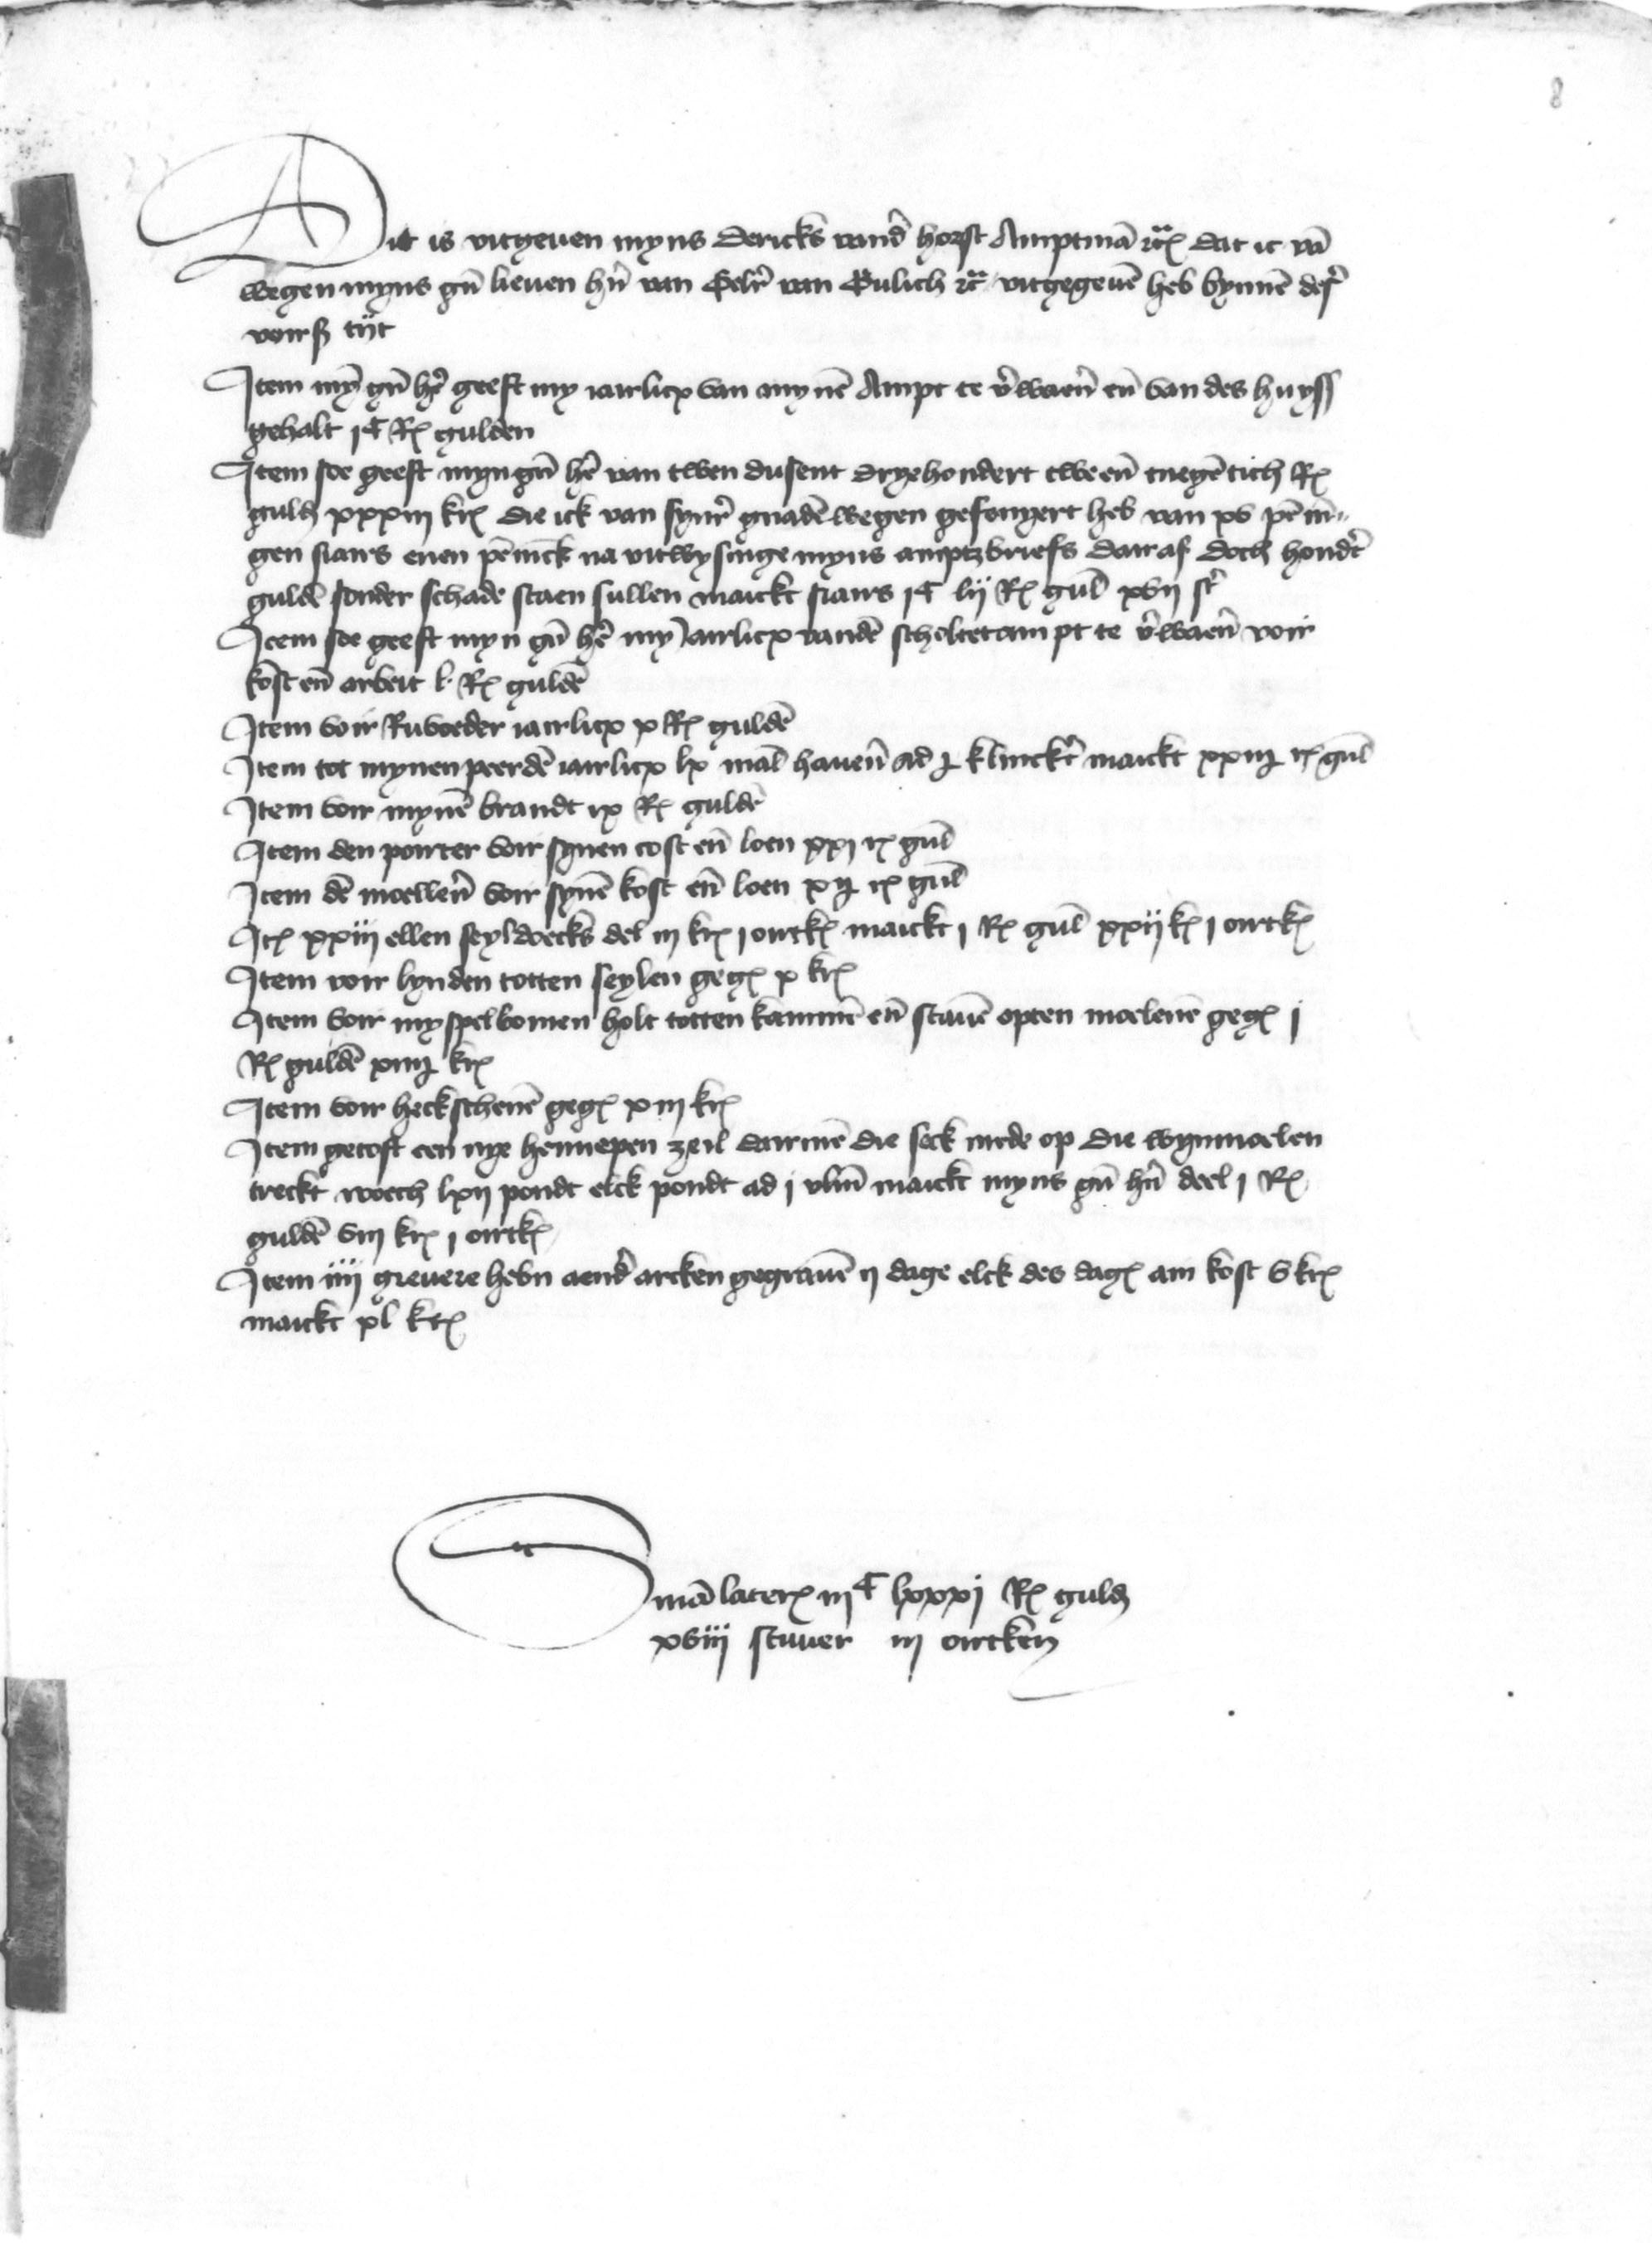 8
Dit is vitgeuen myns Dericks vand' horst Amptmā etc̄ dat ic vā
wegen myns gn̄ lieuen hn̄ van Gelr' van Gulich etc̄ vitgegeuē heb bynnē des'
voirß tijt
Item myn̄ gn̄ he' geeft my iairlicx van mynē Ampt te v'waen̄ en̄ van des huyss
gehalt jC Rˀ gulden
Item soe geeft myn gn̄ he' van twen dusent dryehondert twe en̄ tnegētich Rˀ
guld xxxiij krˀ die ick van synr' gnadē wegen gefonyert heb van xv pēnin=
gen siairs enen pēninck na vitwysinge myns amptzbriefs dair af doch hond't
guldē sonder schade staen sullen maickt siairs jC lij Rˀ gul̄ xvij st'
Item soe geeft myn gn̄ he' my Jairlicx vandē scholtetampt te v'waen̄ voir
kost en̄ arbeit l Rˀ guldē
Item voir Ruvoeder iairlicx x Rˀ guldē
Item tot mynen peerdē iairlicx lx mal̄ hauen̄ ad j klinck't maickt xxiiij rˀ gul̄
Item voir mynē brandt ix Rˀ guldē
Item den poirter voir synen cost en̄ loen xxj rˀ gul̄
Item dē moellen̄ voir synē kost en̄ loen xij rˀ gul̄
Itˀ xxiij ellen seyldoecks del iij krˀ j oirtkˀ maickt j Rˀ gul̄ xxij kˀ j oirtkˀ
Item voir lynden totten seylen gegˀ x krˀ
Item voir myspelbomen holt totten kammē en̄ stauē opten moelenē gegˀ j
Rˀ guldē xiiij krˀ
Item voir heckschenē gegˀ xiij krˀ
Item gecoft een nye hennepen zeil dair mē die seck mede op die wynmoelen
treckt woech lxij pondt elck pondt ad j vlm̄ maickt myns gn̄ hn̄ deel j Rˀ
guldē viij krˀ j oirtkˀ
Item iiij greuere hebn aend' arcken gegrauē ij dage elck des dagˀ am kost v krˀ
maickt xl krˀ
Sūmā laterˀ iijC lxxxj Rˀ guld
xviij stuuer iij oirtken